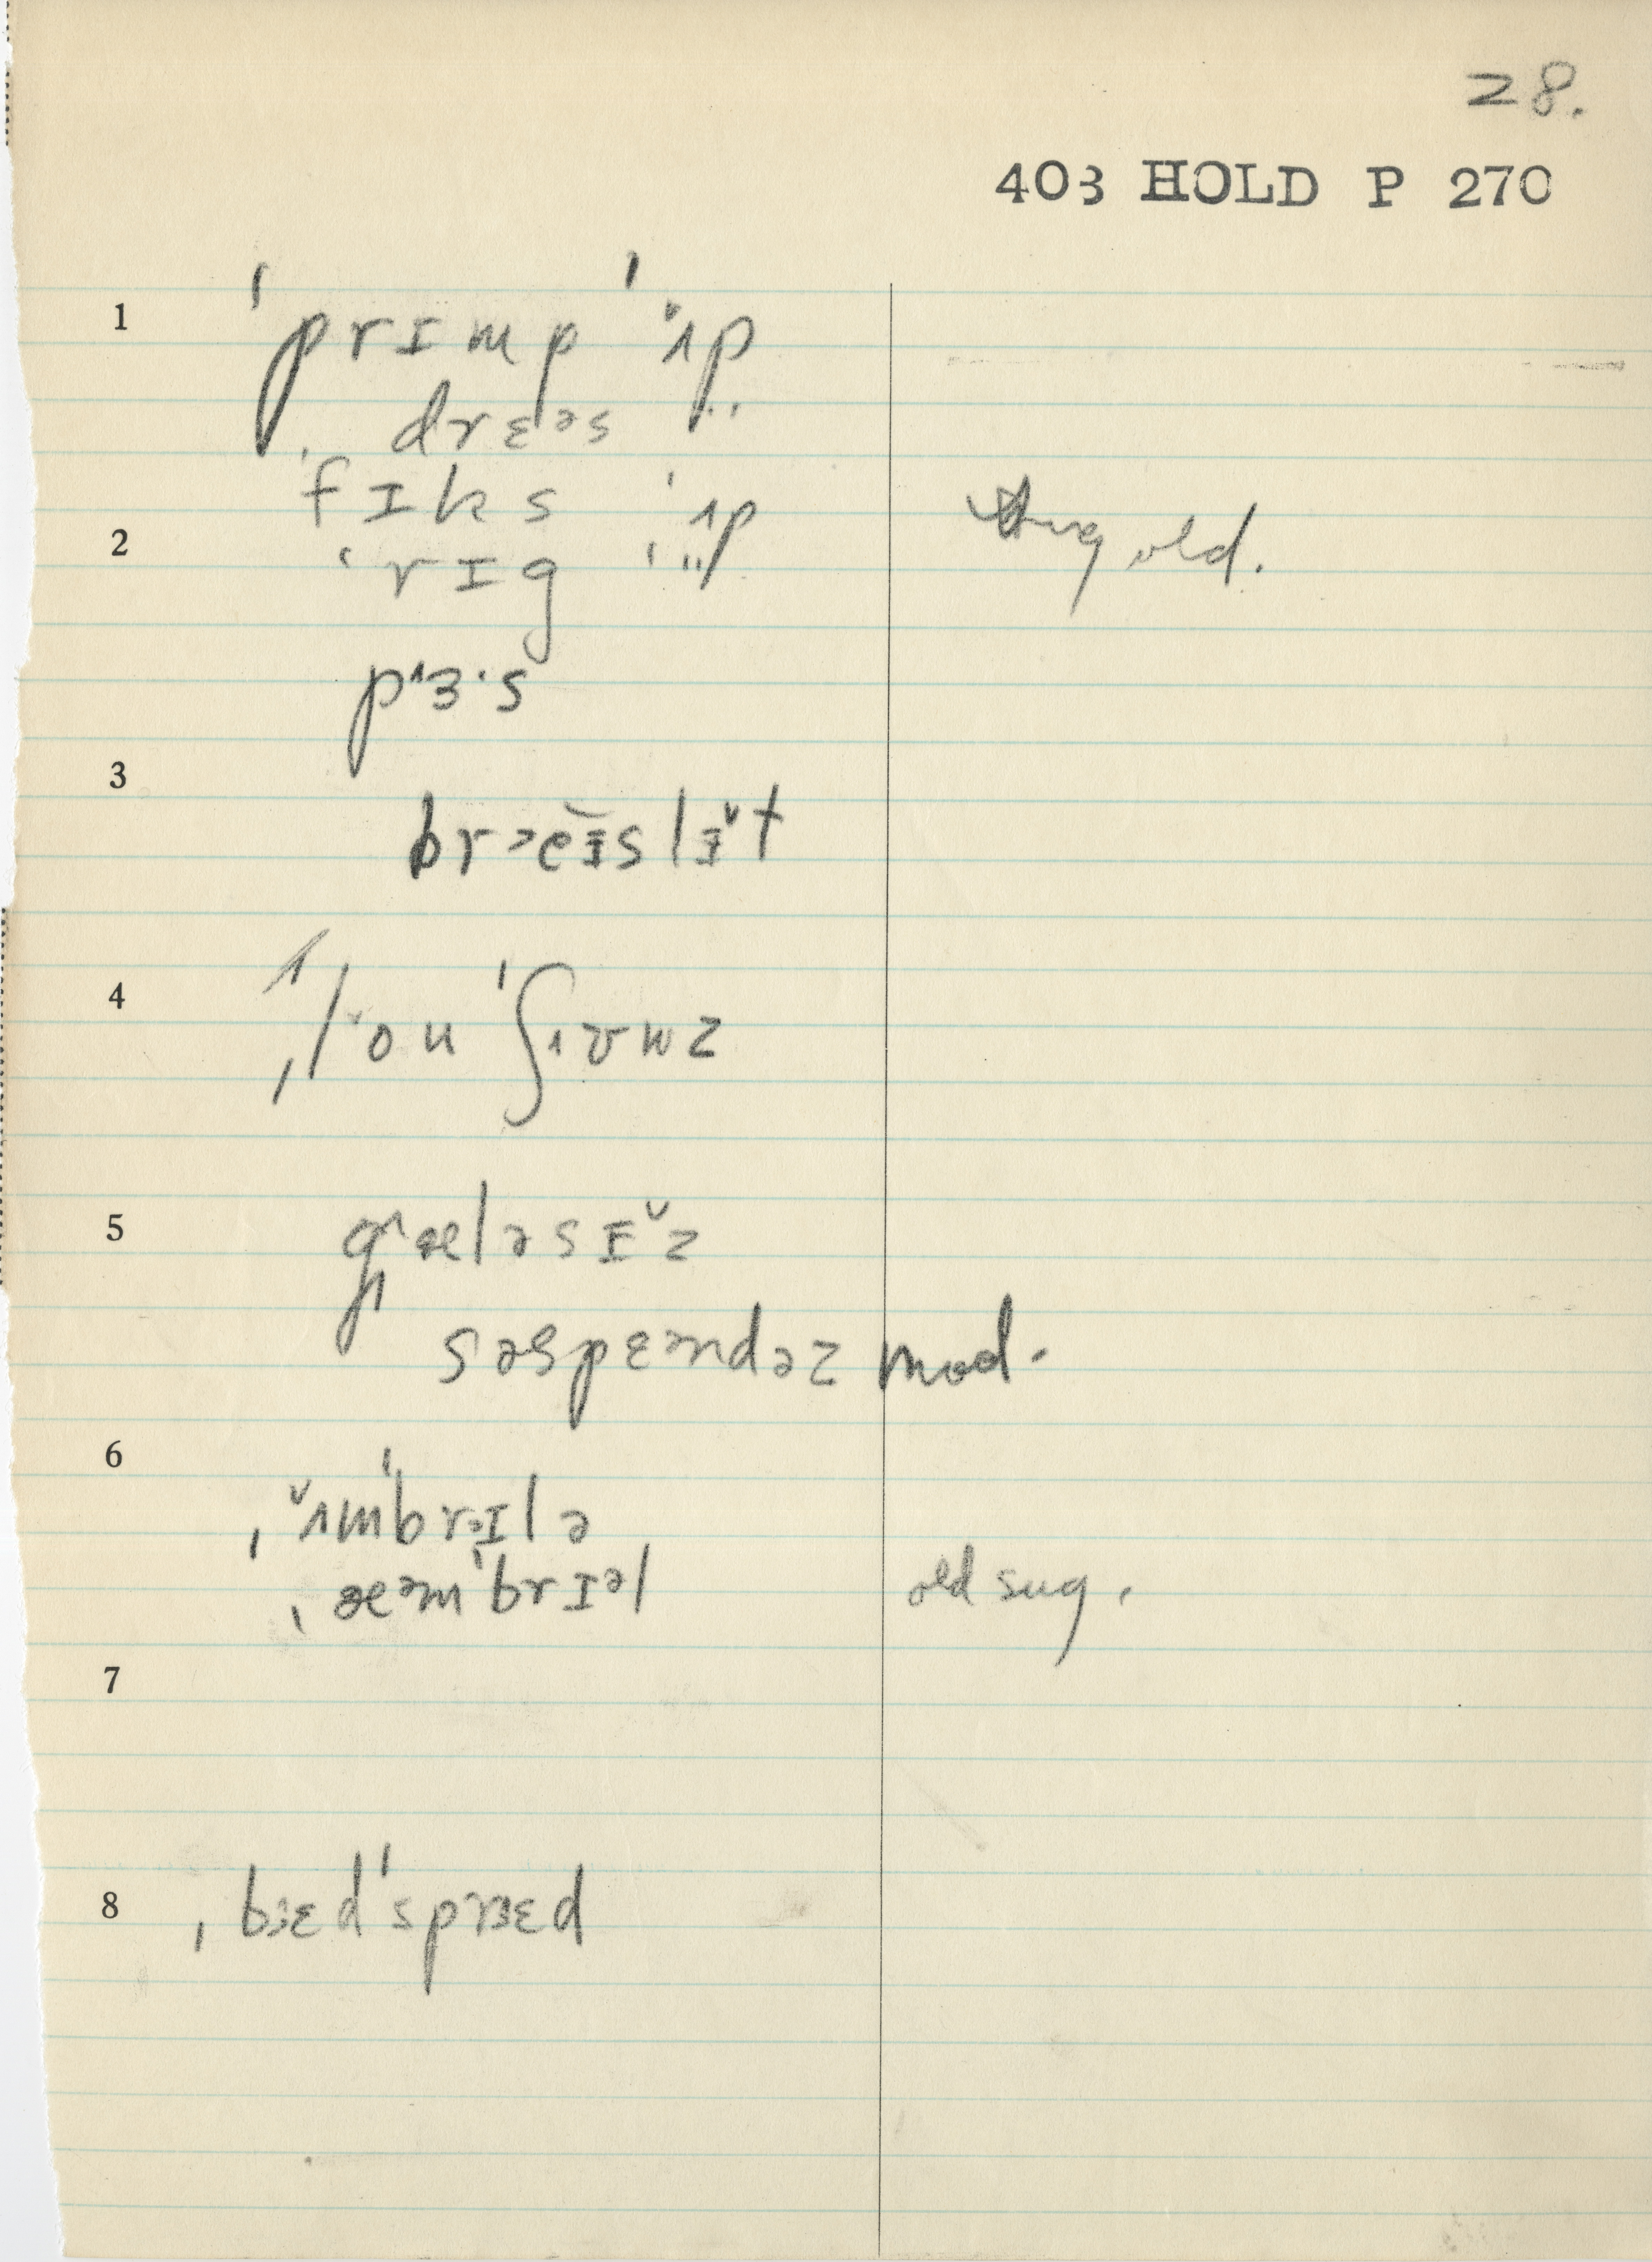 28.
403 HOLD P 270
1 ˈprɪmp ˈʌ̆p
drɛəs
2 ˈfɪks ˈʌp
ˈrɪg ˈʌ̈p old.
p^ɜ·s
3 brəeɪ̆slɪ̆t
4 ˌlou ˈʃʌʊwz
5 g^æləsɪ̆z
səspɛəndəz mod.
6 ˌʌ̆mˈbrəɪlə
ˌæəmˈbrɪəl old sug.
7
8 ˌbɜɛdˈsprɜɛd